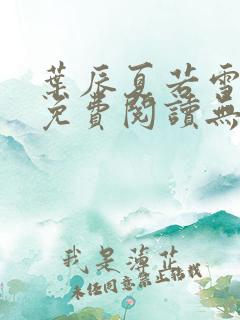 葉辰夏若雪
免費閱讀無
我是薄芷
未經同意禁止轉載